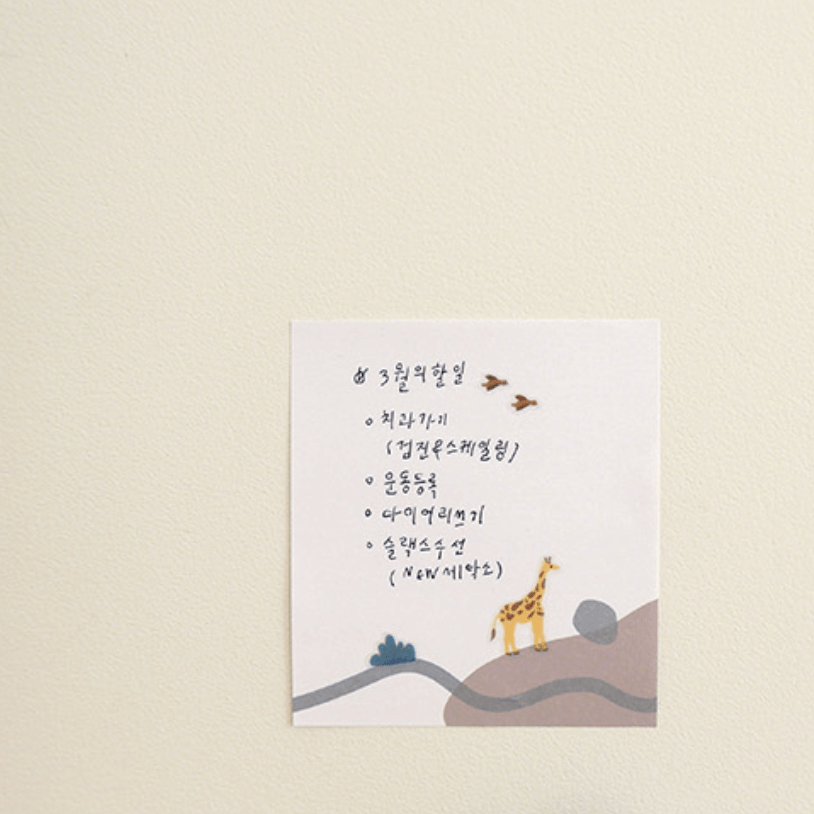 3월의할일
치과가기
(검진&스케일링)
운동등록
다이어리쓰기
슬랙스수선
(NEW세탁소)